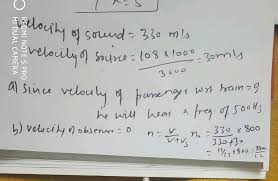 velocity of sound = 330 m/s
velocity of source = 108 x 1000 / 3600 = 30 m/s
a) Since velocity of passenger wrt train = 0
he will hear a freq of 500 Hz
b) Velocity of observer = 0 n = v / v+vs n0 = 330 / 330+30 x 800
MI DUAL CAMERA